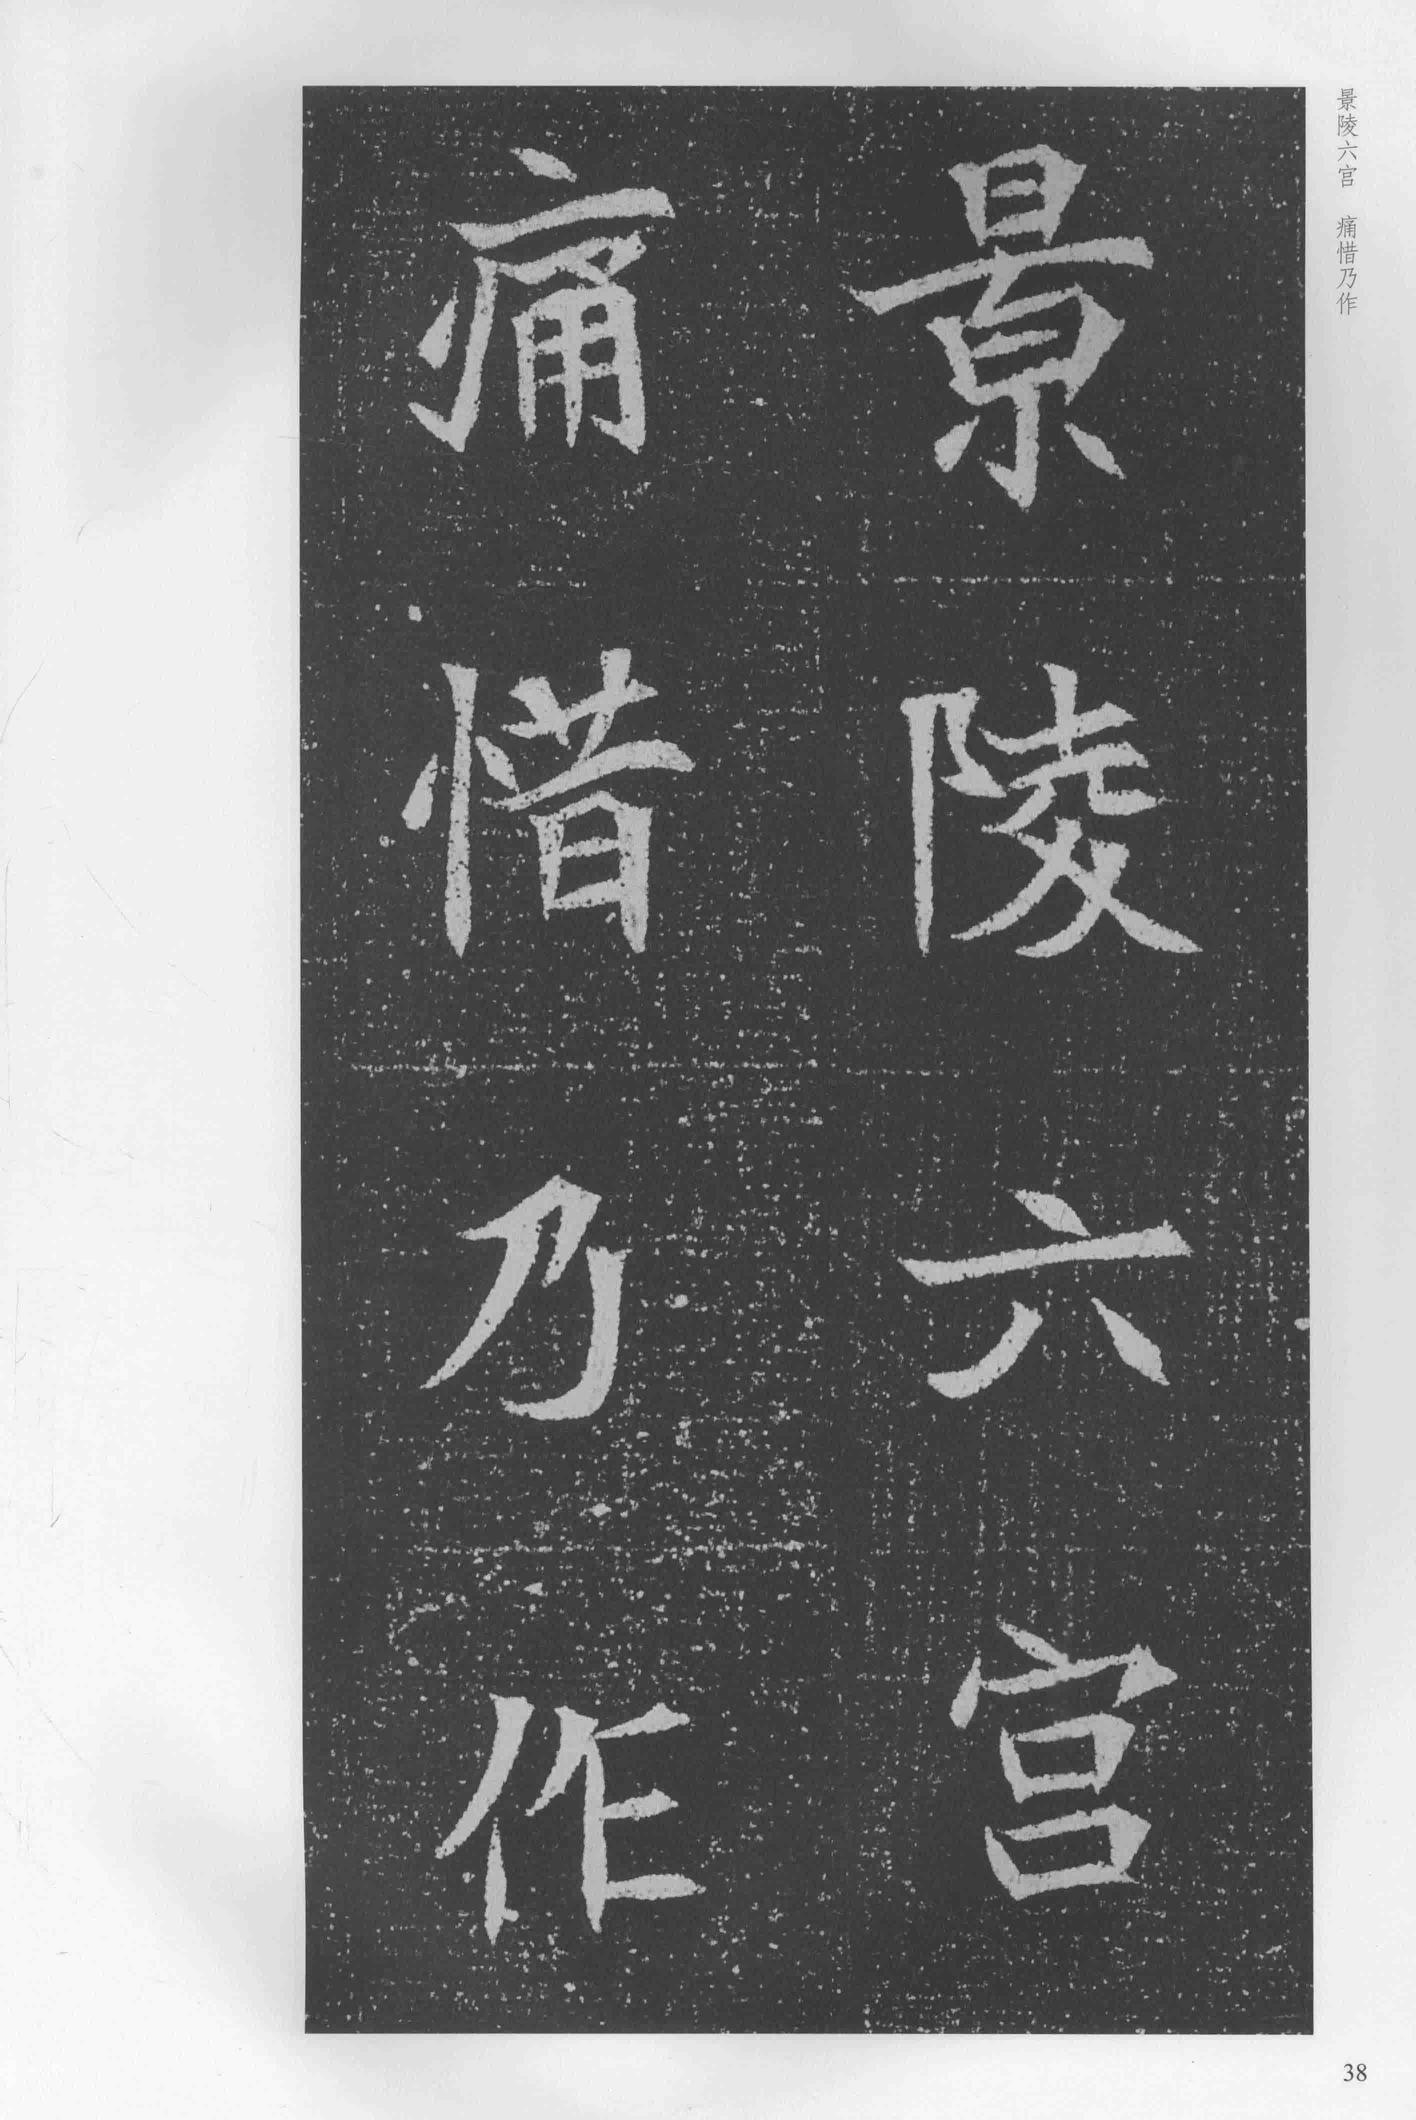 景陵六宫　痛惜乃作
景陵六宫
痛惜乃作
38